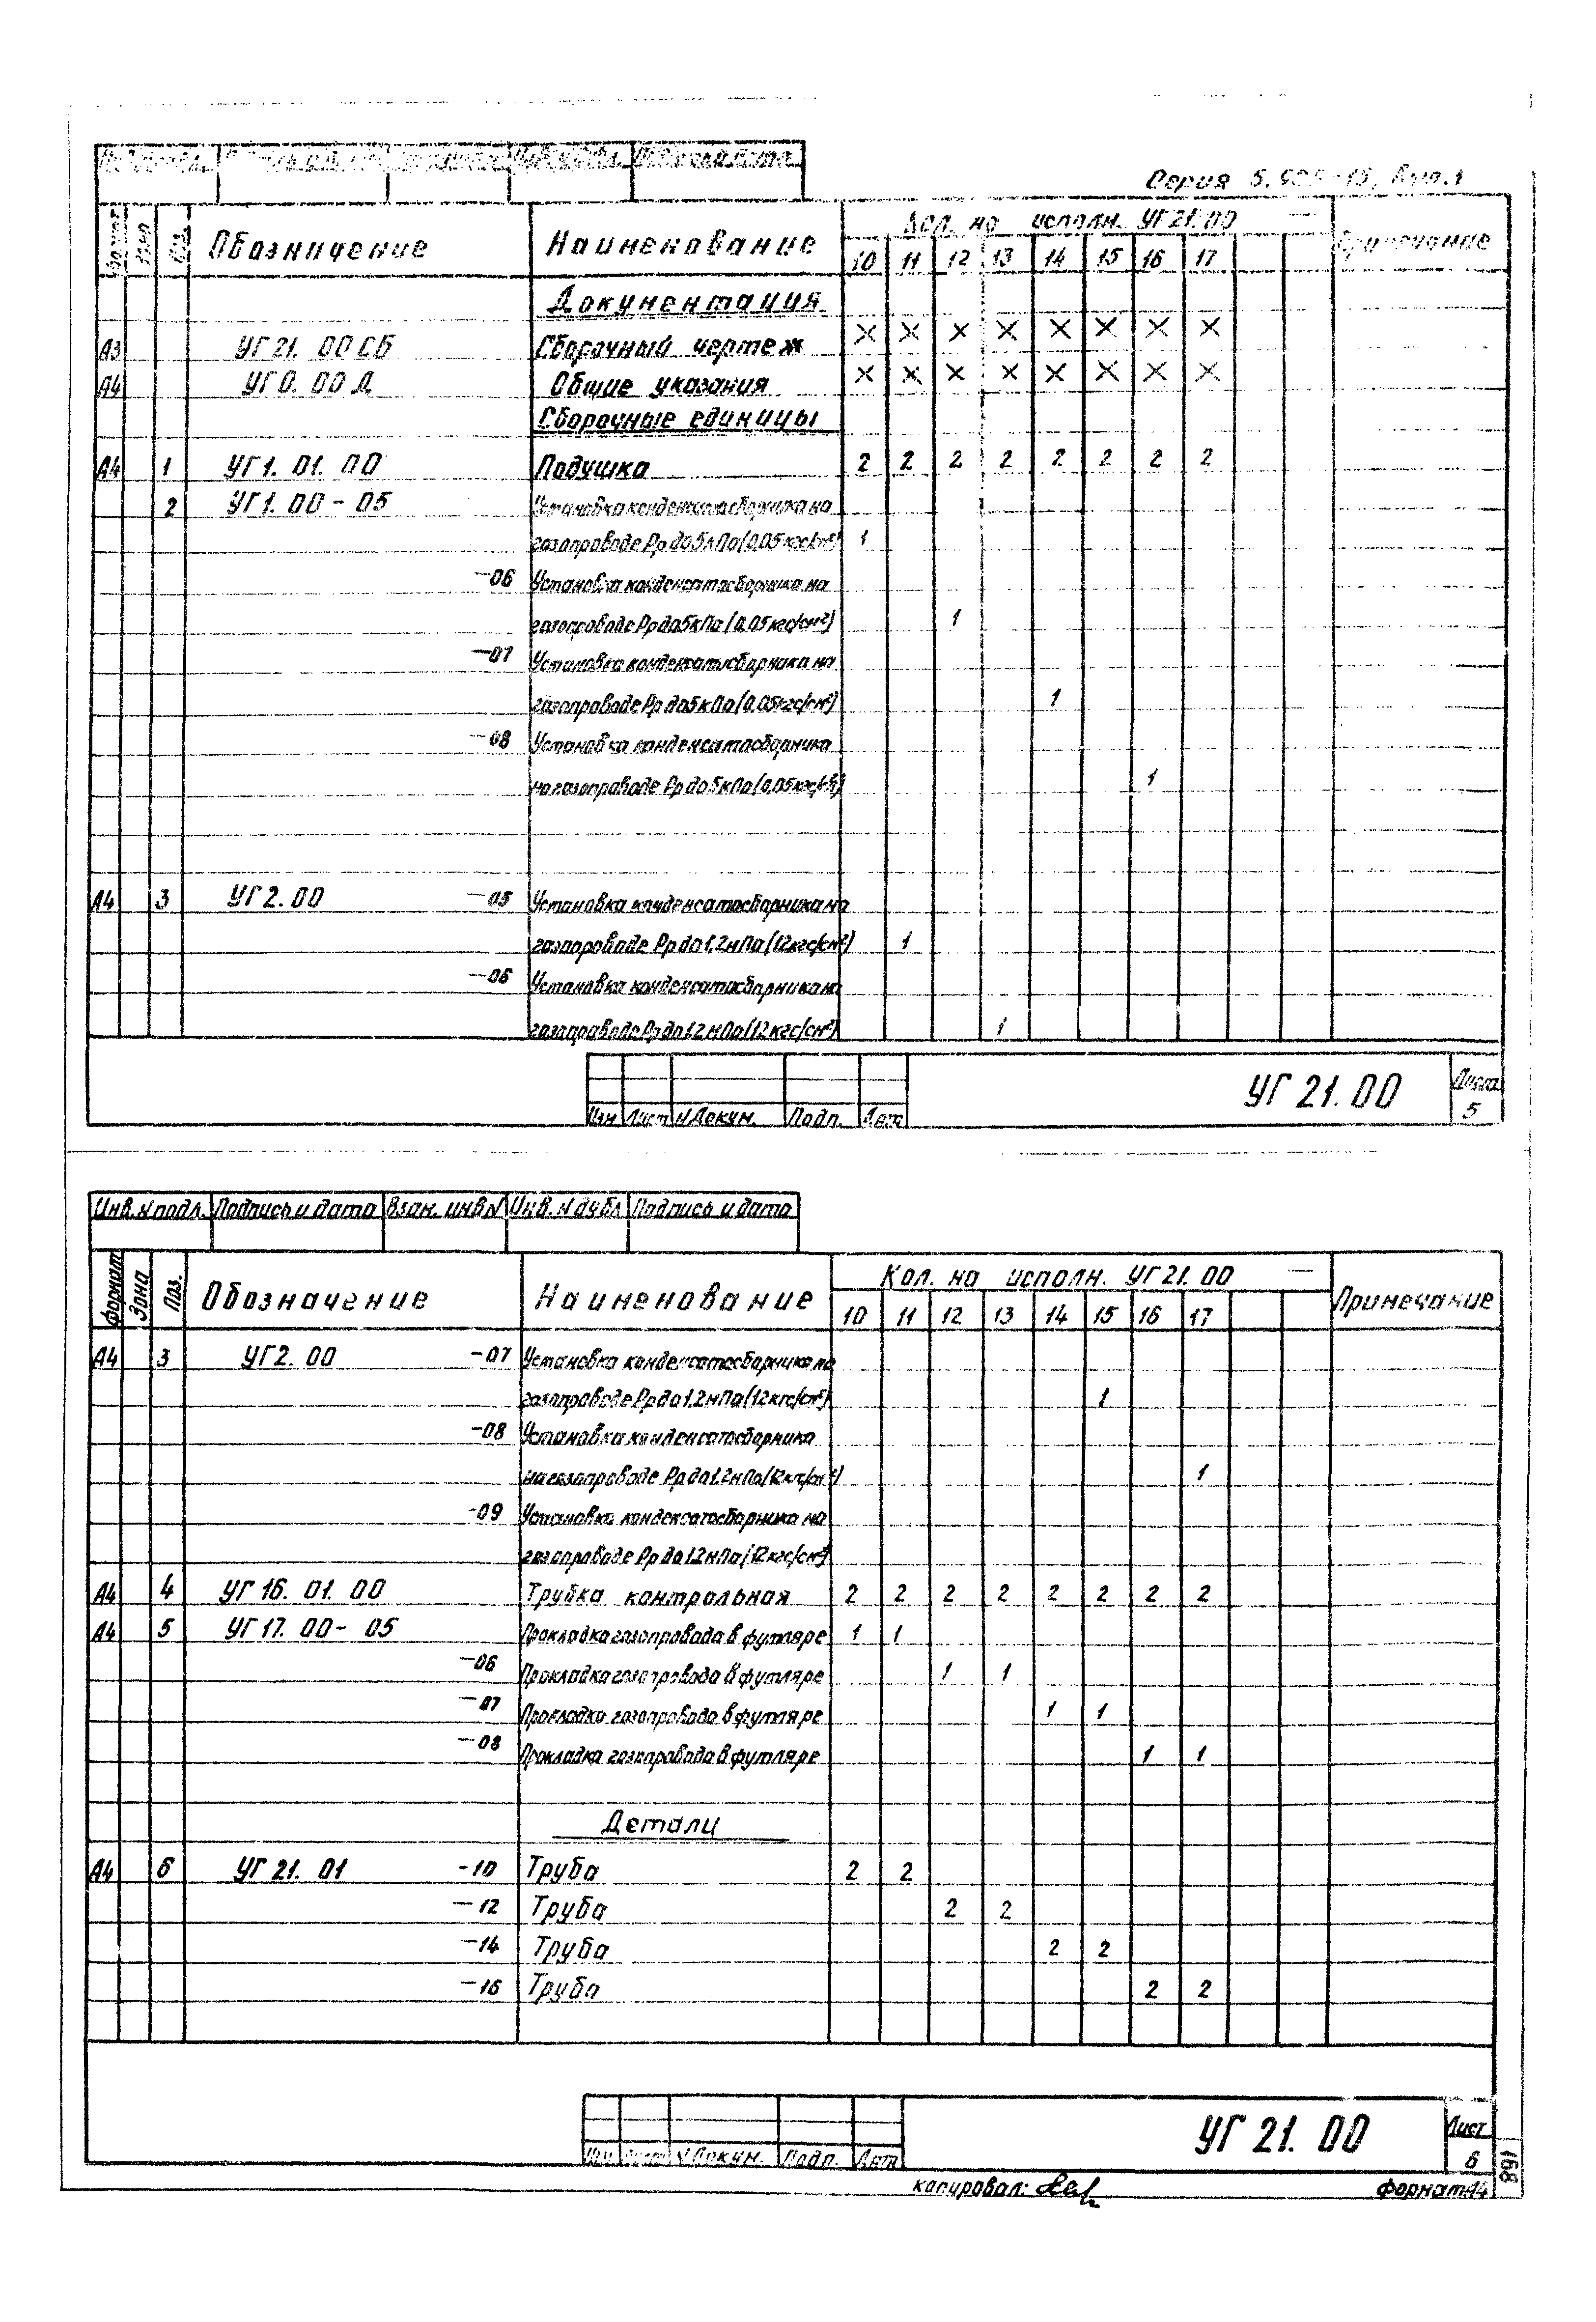 Серия 5.905-15, Вып.1
Обозначение Наименование Кол. на исполн. УГ21.00 — Примечание
10 11 12 13 14 15 16 17
Документация
А3 УГ21. 00СБ Сборочный чертеж × × × × × × × ×
А4 УГ0. 00 Д Общие указания × × × × × × × ×
Сборочные единицы
А4 1 УГ1. 01. 00 Подушка 2 2 2 2 2 2 2 2
2 УГ1. 00 - 05 Установка конденсатосборника на
газопроводе Рр до5кПа(0,05кгс/см²) 1
-06 Установка конденсатосборника на
газопроводе Рр до5кПа(0,05кгс/см²) 1
-07 Установка конденсатосборника на
газопроводе Рр до5кПа(0,05кгс/см²) 1
-08 Установка конденсатосборника
на газопроводе Рр до5кПа(0,05кгс/см²) 1
А4 3 УГ2. 00 -05 Установка конденсатосборника на
газопроводе Рр до1,2мПа(12кгс/см²) 1
-06 Установка конденсатосборника на
газопроводе Рр до1.2мПа(12кгс/см²) 1
Изм Лист №Докум. Подп. Дат УГ 21.00 Лист
5
Инв.№подл. Подпись и дата Взам. инв№ Инв.№дубл Подпись и дата
Формат Зона Поз. Обозначение Наименование Кол. на исполн. УГ21.00 — Примечание
10 11 12 13 14 15 16 17
А4 3 УГ2. 00 -07 Установка конденсатосборника на
газопроводе Рр до1.2мПа(12кгс/см²) 1
-08 Установка конденсатосборника
на газопроводе Рр до1.2мПа(12кгс/см²) 1
-09 Установка конденсатосборника на
газопроводе Рр до1.2мПа(12кгс/см²)
А4 4 УГ16. 01. 00 Трубка контрольная 2 2 2 2 2 2 2 2
А4 5 УГ17. 00- 05 Прокладка газопровода в футляре 1 1
-06 Прокладка газопровода в футляре 1 1
-07 Прокладка газопровода в футляре 1 1
-08 Прокладка газопровода в футляре 1 1
Детали
А4 6 УГ21. 01 -10 Труба 2 2
-12 Труба 2 2
-14 Труба 2 2
-16 Труба 2 2
Изм Лист №Докум. Подп. Дата УГ 21. 00 Лист
6
168
копировал: формат А4